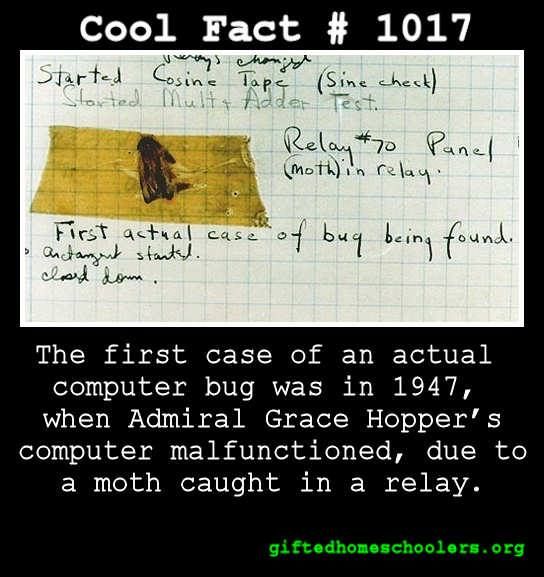 Cool Fact # 1017
Relays changed
Started Cosine Tape (Sine check)
Started Mult + Adder Test.
Relay #70 Panel
(moth) in relay.
First actual case of bug being found.
started.
closed down.
The first case of an actual
computer bug was in 1947,
when Admiral Grace Hopper's
computer malfunctioned, due to
a moth caught in a relay.
giftedhomeschoolers.org